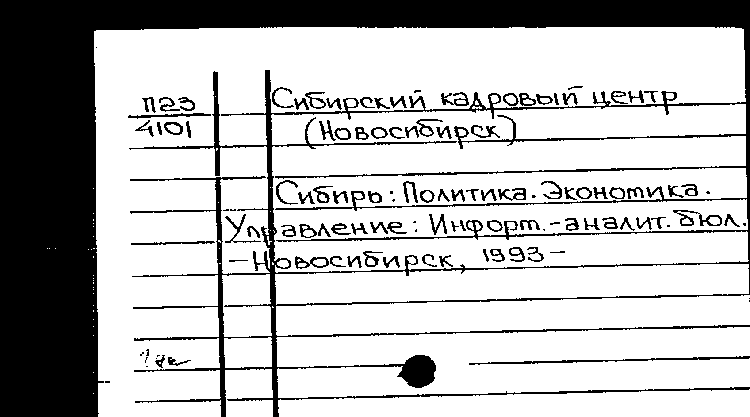 П23
4101
Сибирский кадровый центр
(Новосибирск)
Сибирь: Политика. Экономика.
Управление: Информ.-аналит. бюл.
- Новосибирск, 1993 -